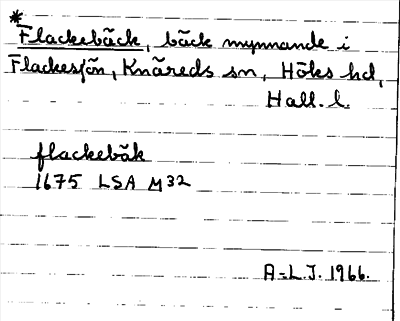 *
Flackebäck, bäck mynnande i
Flackesjön, Knäreds sn, Höks hd,
Hall. l.
flackebäk
1675 LSA M32
A-L.J. 1966.